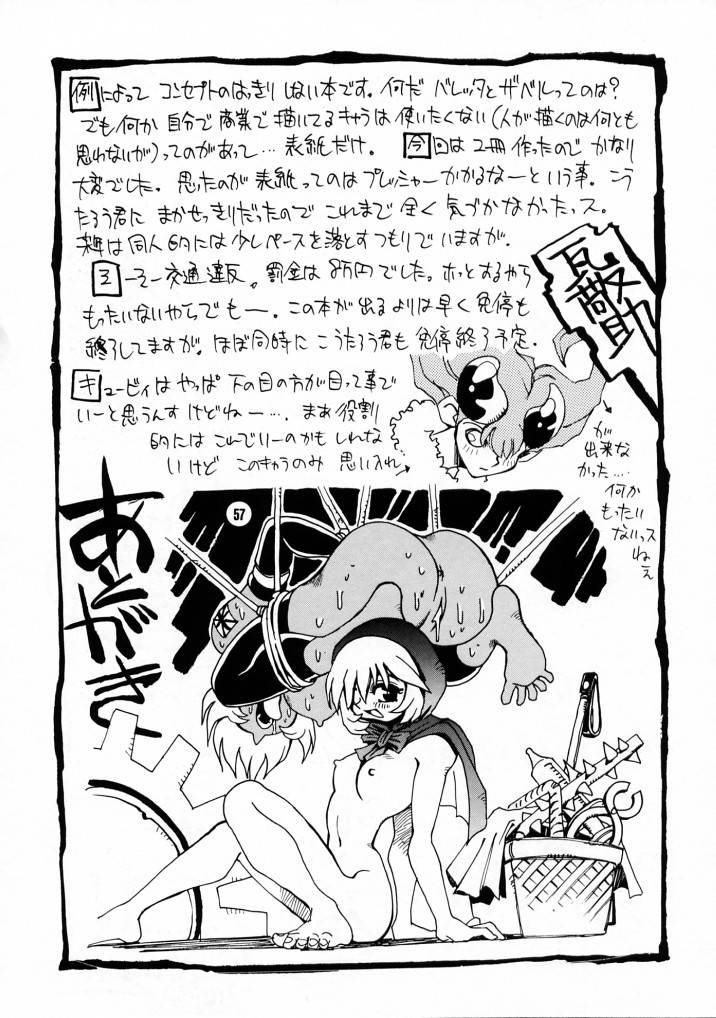 例によって コンセプトのはっきり しない本です。何だ バレッタとザベルってのは?
でも何か 自分で商業で描いてるキャラは 使いたくない(人が描くのは何とも
思わないが)ってのがあって…表紙だけ。 今回は2冊作ったので かなり
大変でした。思ったのが 表紙ってのは プレッシャーかかるなーという事。こう
たろう君に まかせっきりだったので これまで 全く気づかなかったっス。
来年は同人的には少しペースを落とすつもりでいますが。
そーそー交通違反。罰金は8万円でした。ホッとするやら
もったいないやらでもー。この本が出るよりは早く免停も
終了してますが。ほぼ同時に こうたろう君も 免停終了予定.
キュービィはやっぱ 下の目の方が目って事で
いーと思うんす けどねー…. まあ役割
的には これでいーのかも しれな
いけど このキャラのみ 思い入れ
が
出来な
かった….
何か
もったい
ないっス
ねぇ
助
あとがき
57